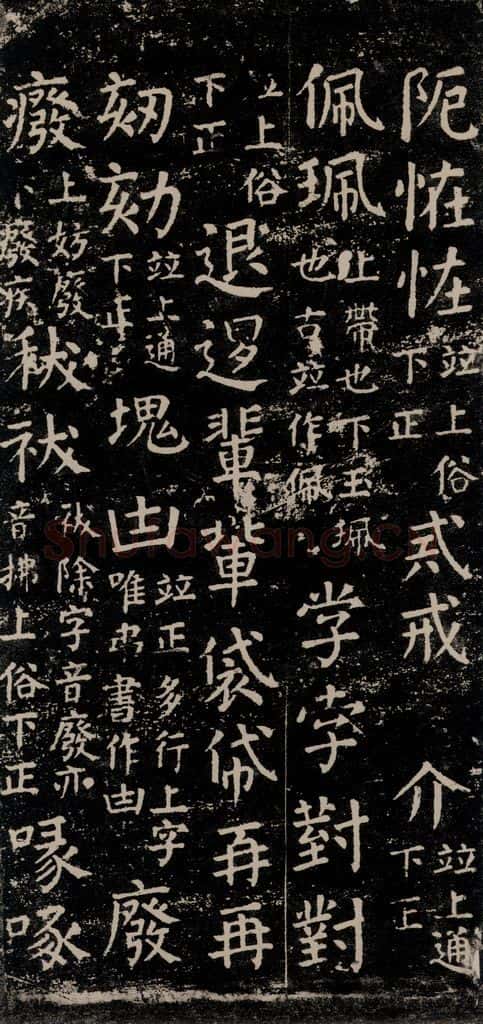 阨恠怪並上俗下正貮戒介並上通下正
佩珮上帶也下玉珮也古並作佩学孛對對
並上俗下正退輩袋帒再再
刻並上通下正塊凷並正多行上字唯書作凷廢
癈上妨廢下癈疾祓祓除字音廢亦音拂上俗下正喙